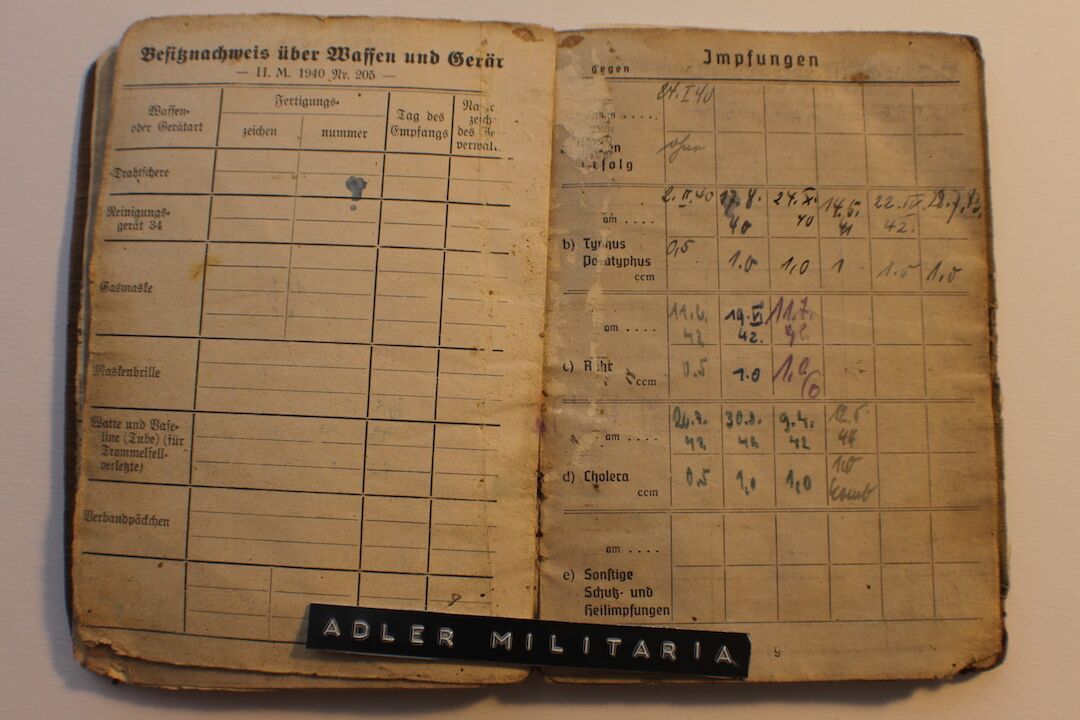 Besitznachweis über Waffen und Gerät
— H. M. 1940 Nr. 205 —
Waffen-
oder Gerätart
Fertigungs-
zeichen
nummer
Tag des
Empfangs
des
Drahtschere
Reinigungs-
gerät 34
Gasmaske
Maskenbrille
Watte und Vase-
line (Tube) (für
Trommelfell-
verletzte)
Verbandpäckchen
Impfungen
gegen
24. I 40
Erfolg
ohne
am . . . .
2. II. 40
17. 8. 40
24. X. 40
14. 5. 41
22. IX. 42.
b) Typhus
Paratyphus
ccm
0,5
1.0
1,0
1
1.0
1,0
am . . . .
11. 6. 42
19. VI 42.
11. 7. 42.
c) Ruhr
ccm
0.5
1.0
1,0
am . . . .
30. 3. 42
9. 4. 42
12. 5 44
d) Cholera
ccm
0,5
1,0
1,0
1,0
am . . . .
e) Sonstige
Schutz- und
Heilimpfungen
9
ADLER MILITARIA